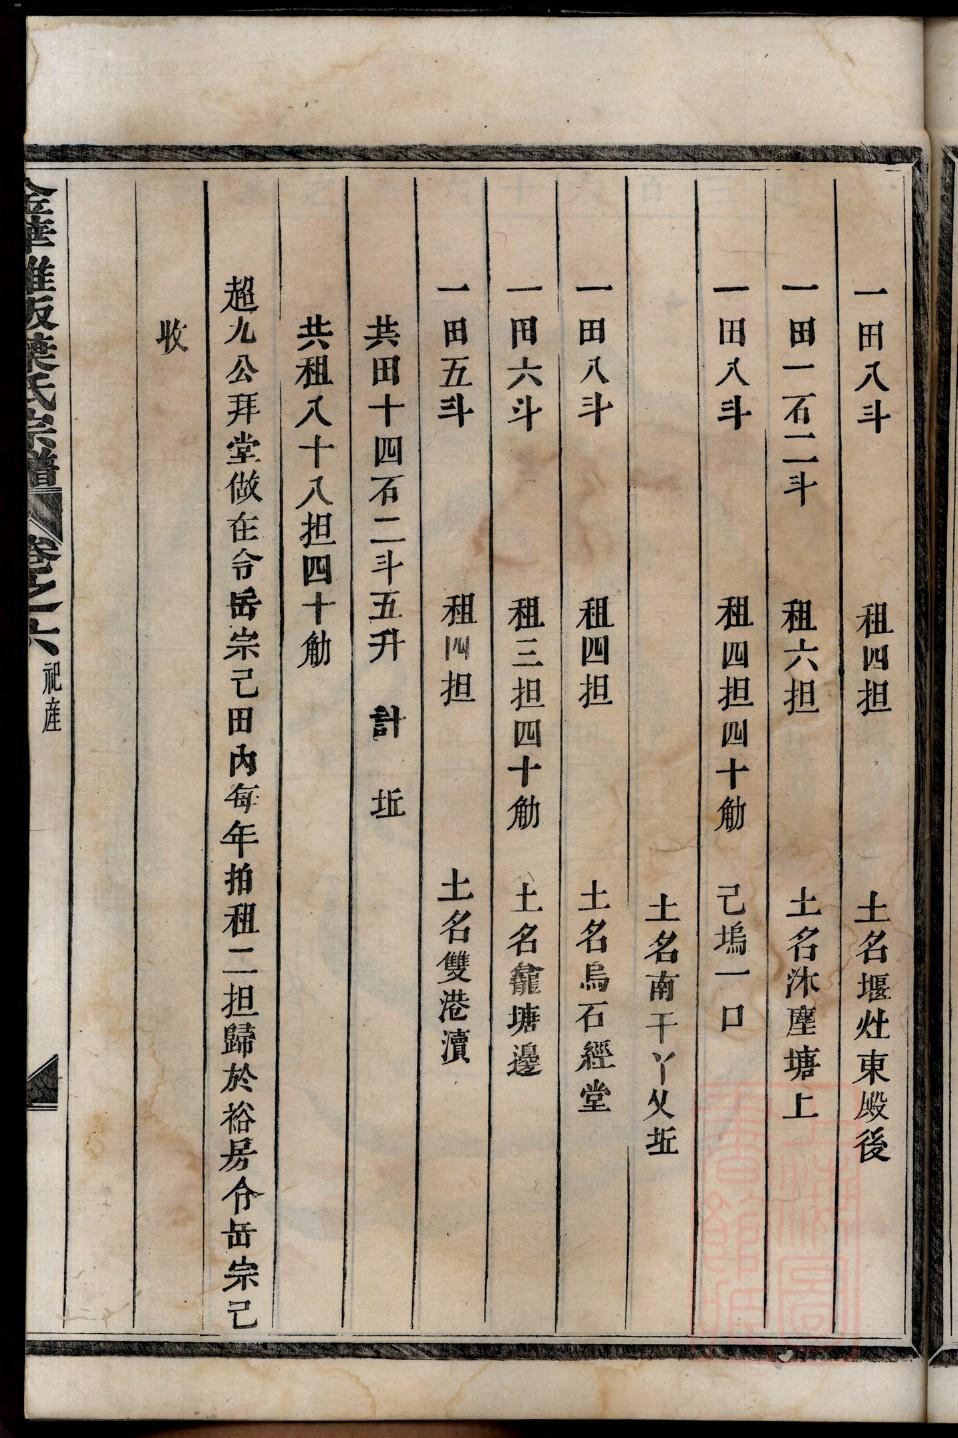 一田八斗 租四担 土名堰灶東殿後
一田一石二斗 租六担 土名沐塵塘上
一田八斗 租四担四十觔 己塢一口
土名南干丫父坵
一田八斗 租四担 土名烏石經堂
一田六斗 租三担四十觔 土名龕塘邊
一田五斗 租四担 土名雙港瀆
共田十四石二斗五升 計 坵
共租八十八担四十觔
超九公拜堂做在令岳宗己田內每年拍租二担歸於裕房令岳宗己
收
金華雅畈葉氏宗譜 卷之六 祀産